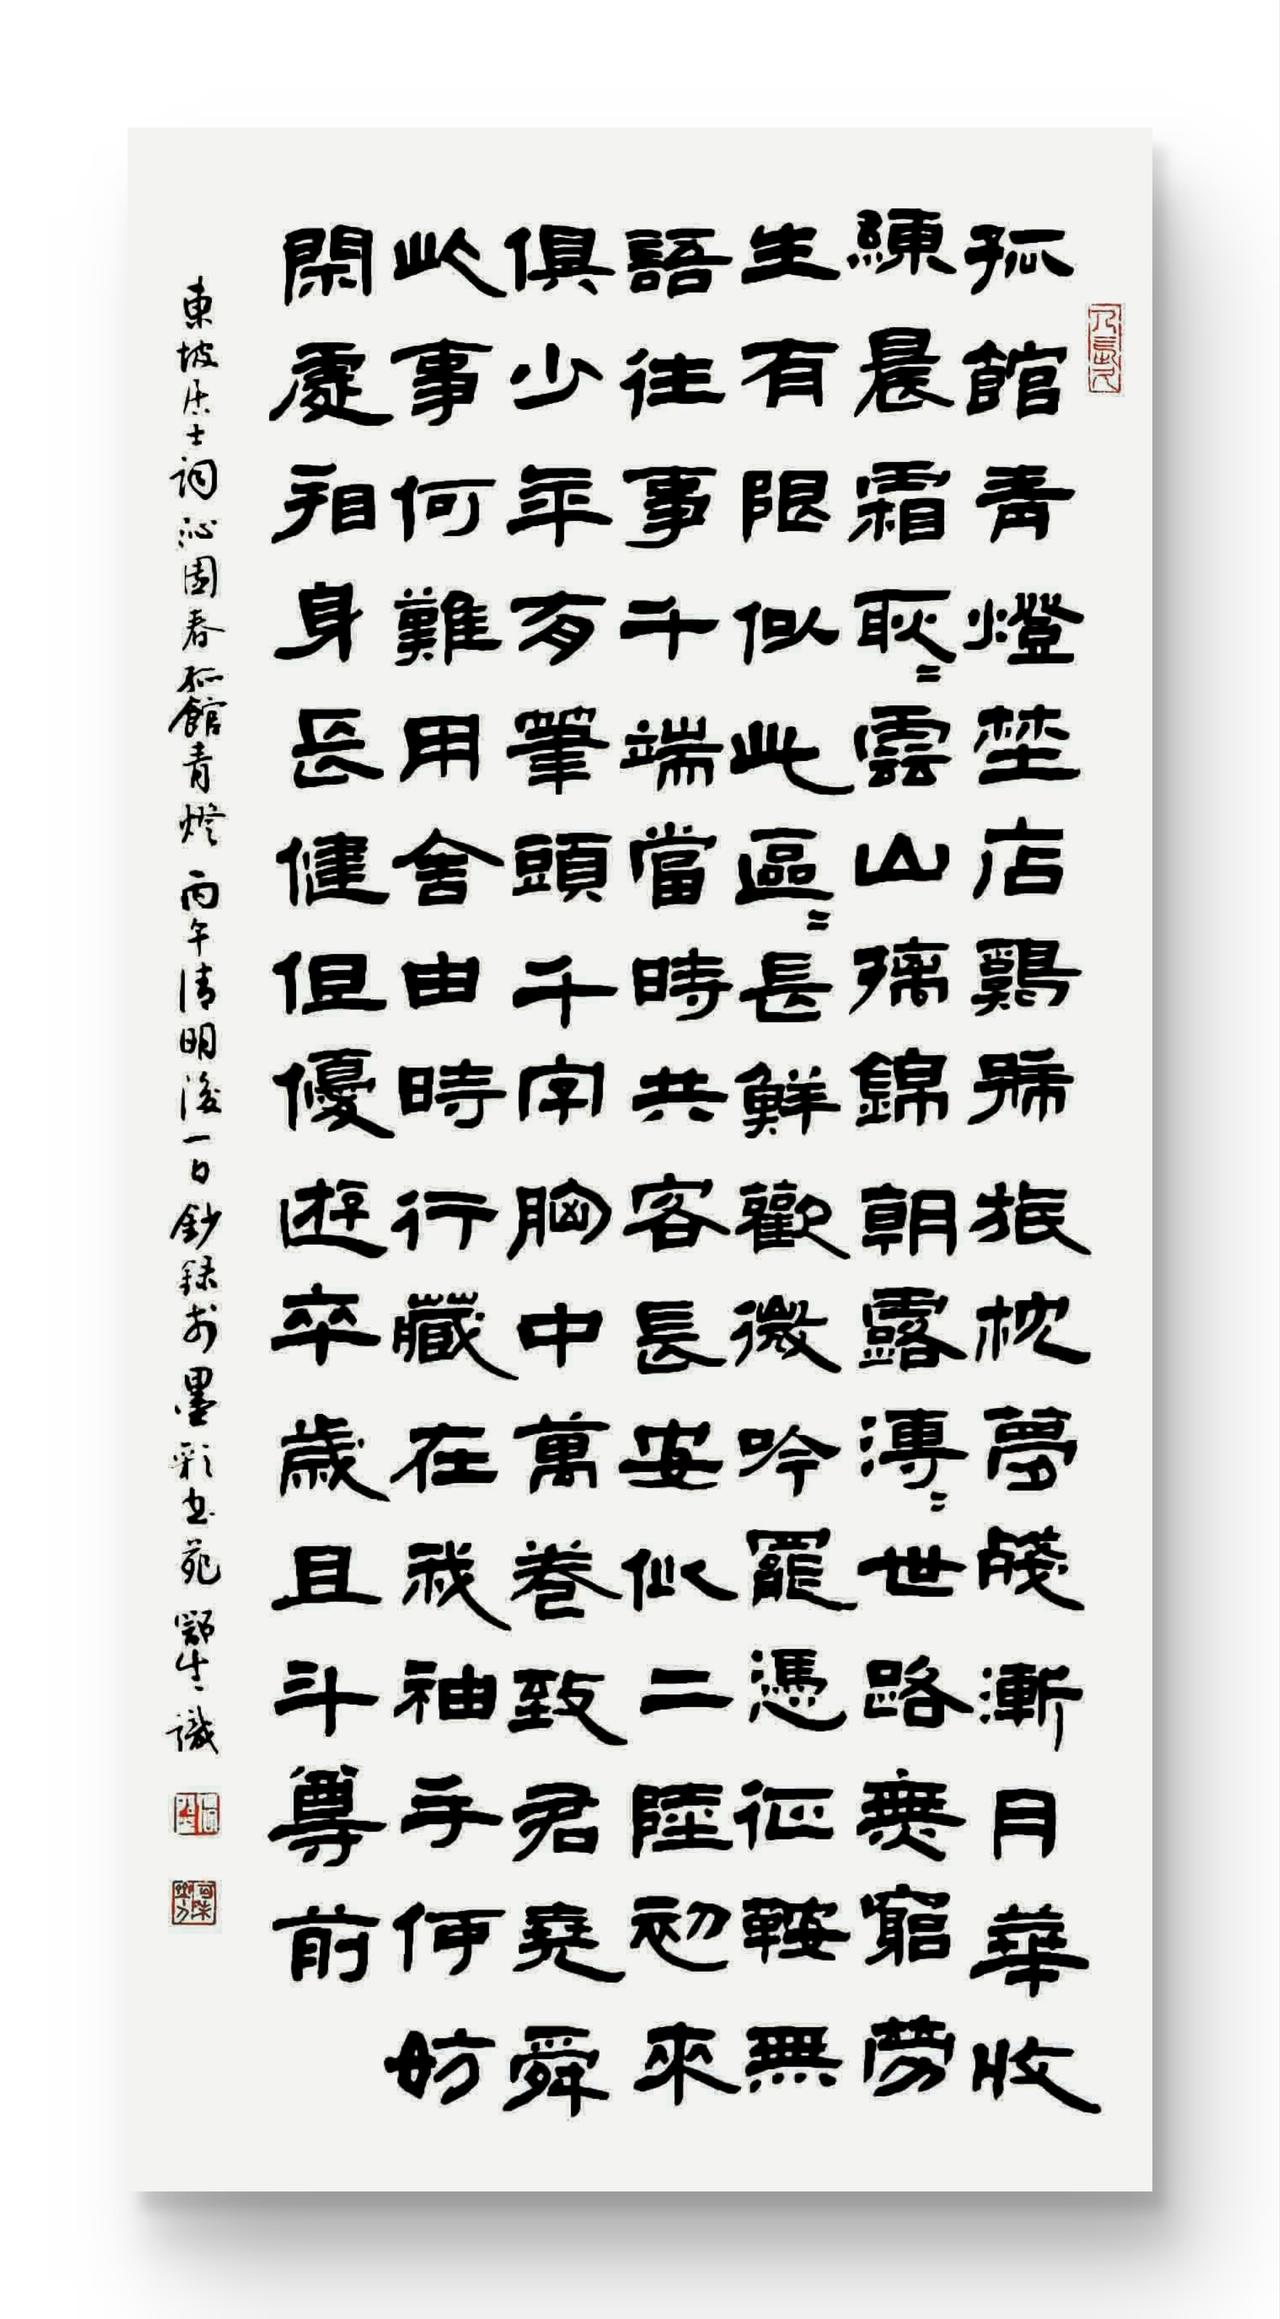 孤館青燈埜店鷄號旅枕夢殘漸月華收
練晨霜耿=雲山摛錦朝露漙=世路無窮勞
生有限似此區=長鮮歡微吟罷憑征鞍無
語往事千端當時共客長安似二陸初來
俱少年有筆頭千字胸中萬卷致君堯舜
此事何難用舍由時行藏在我袖手何妨
閑處看身長健但優遊卒歲且斗尊前
東坡居士詞沁園春孤館青燈 丙午清明後一日鈔錄於墨彩書苑 鄂生識